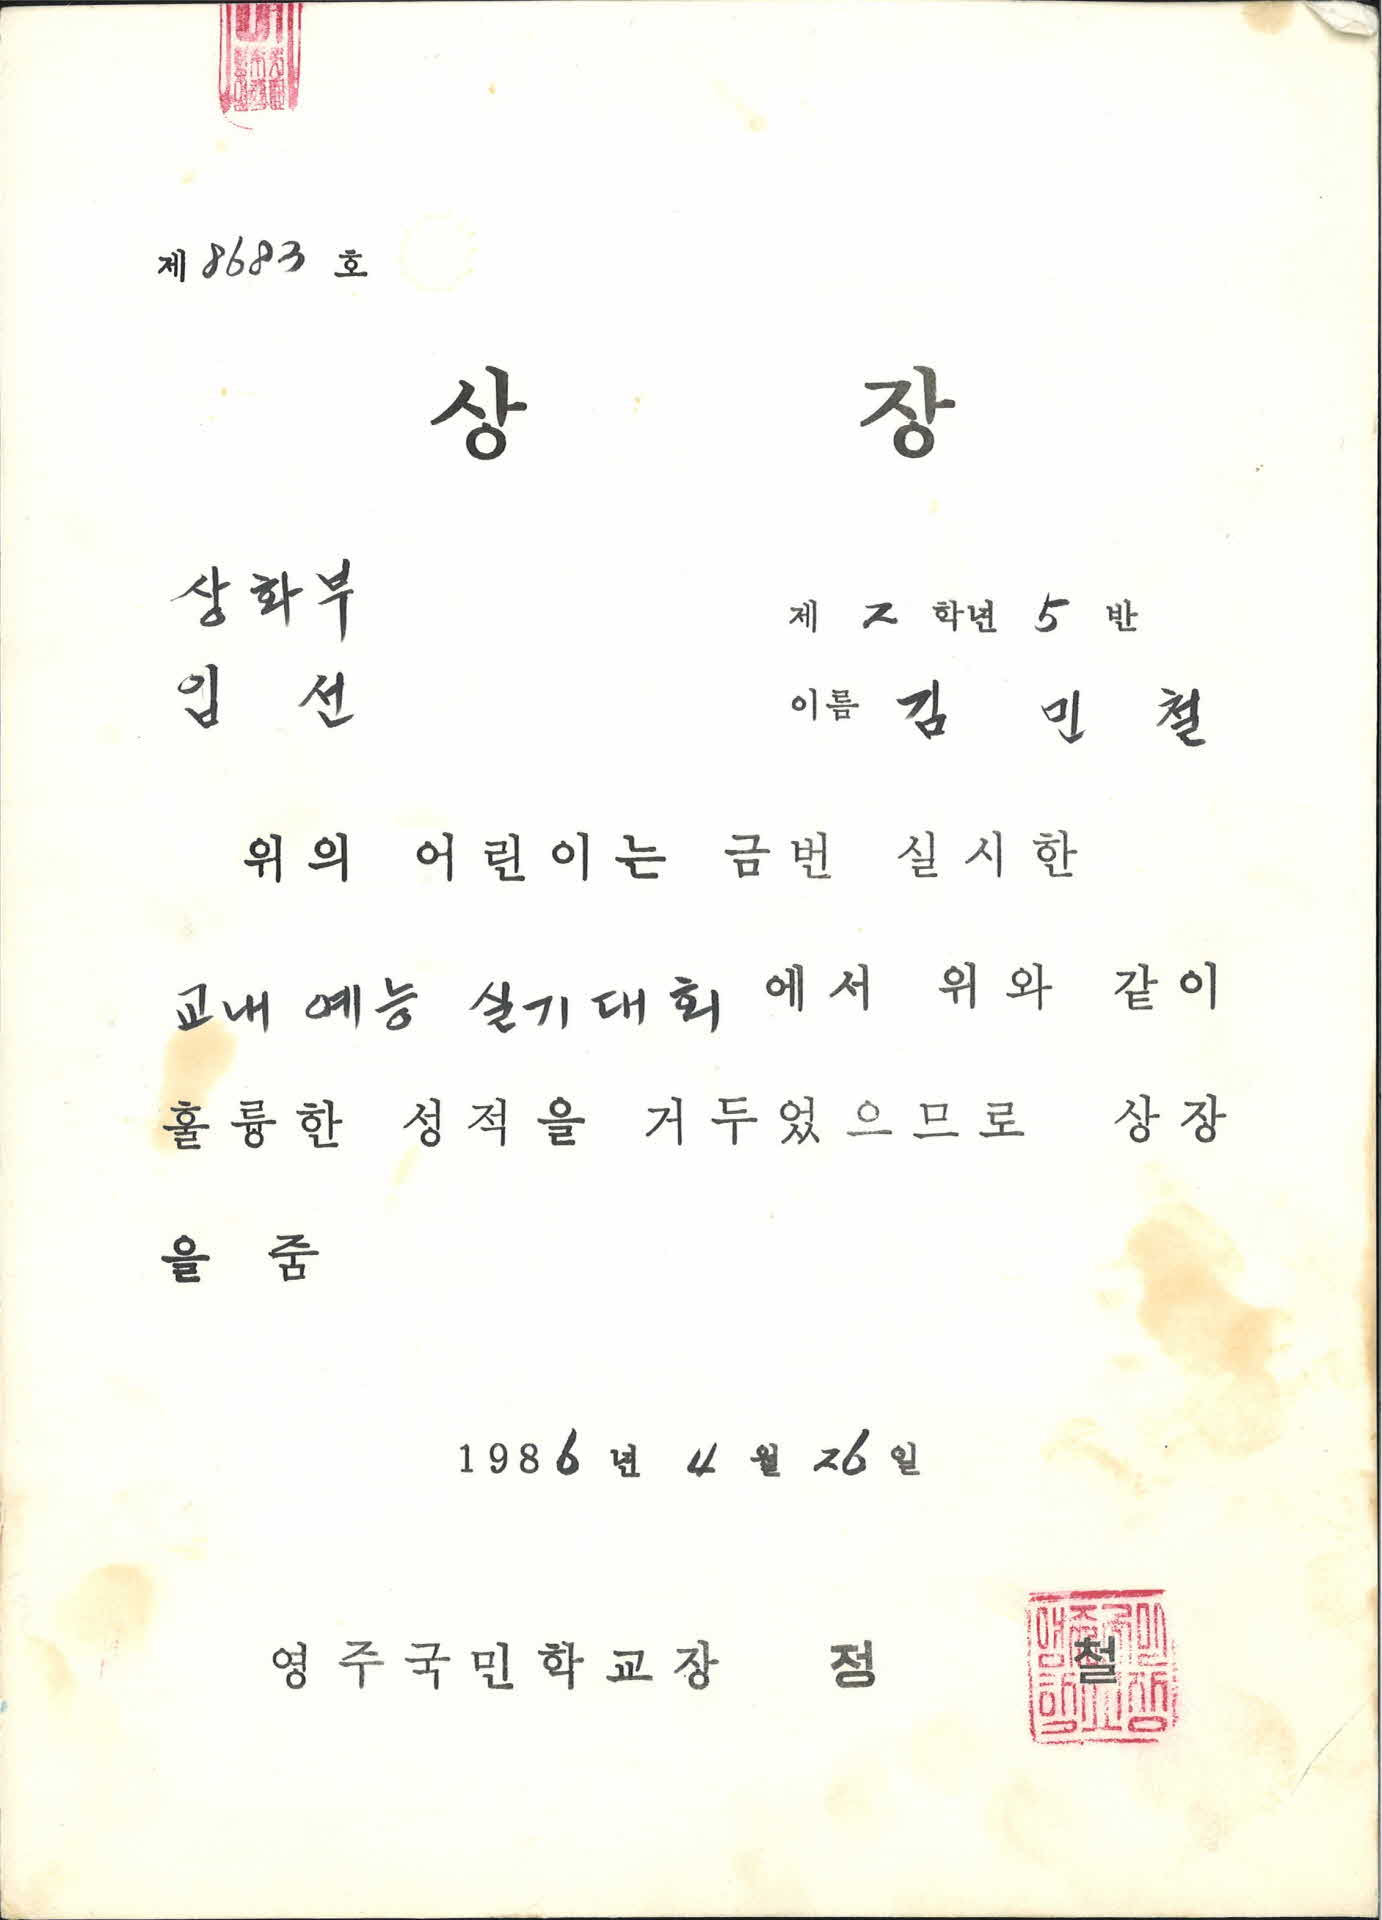 제 8683 호
상 장
상화부
입 선
제 2 학년 5 반
이름 김 민 철
위의 어린이는 금번 실시한
교내 예능 실기대회 에서 위와 같이
훌륭한 성적을 거두었으므로 상장
을 줌
1986 년 4 월 26 일
영주국민학교장 정 철